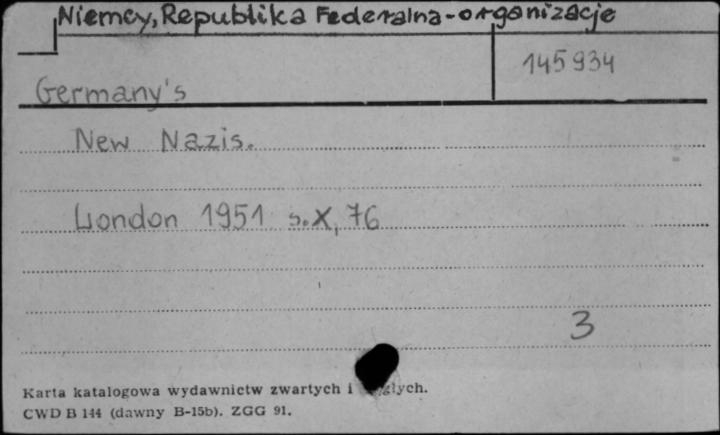 Niemcy, Republika Federalna - organizacje
145934
Germany's
New Nazis.
London 1951 s.X, 76
3
Karta katalogowa wydawnictw zwartych i
CWD B 144 (dawny B-15b). ZGG 91.